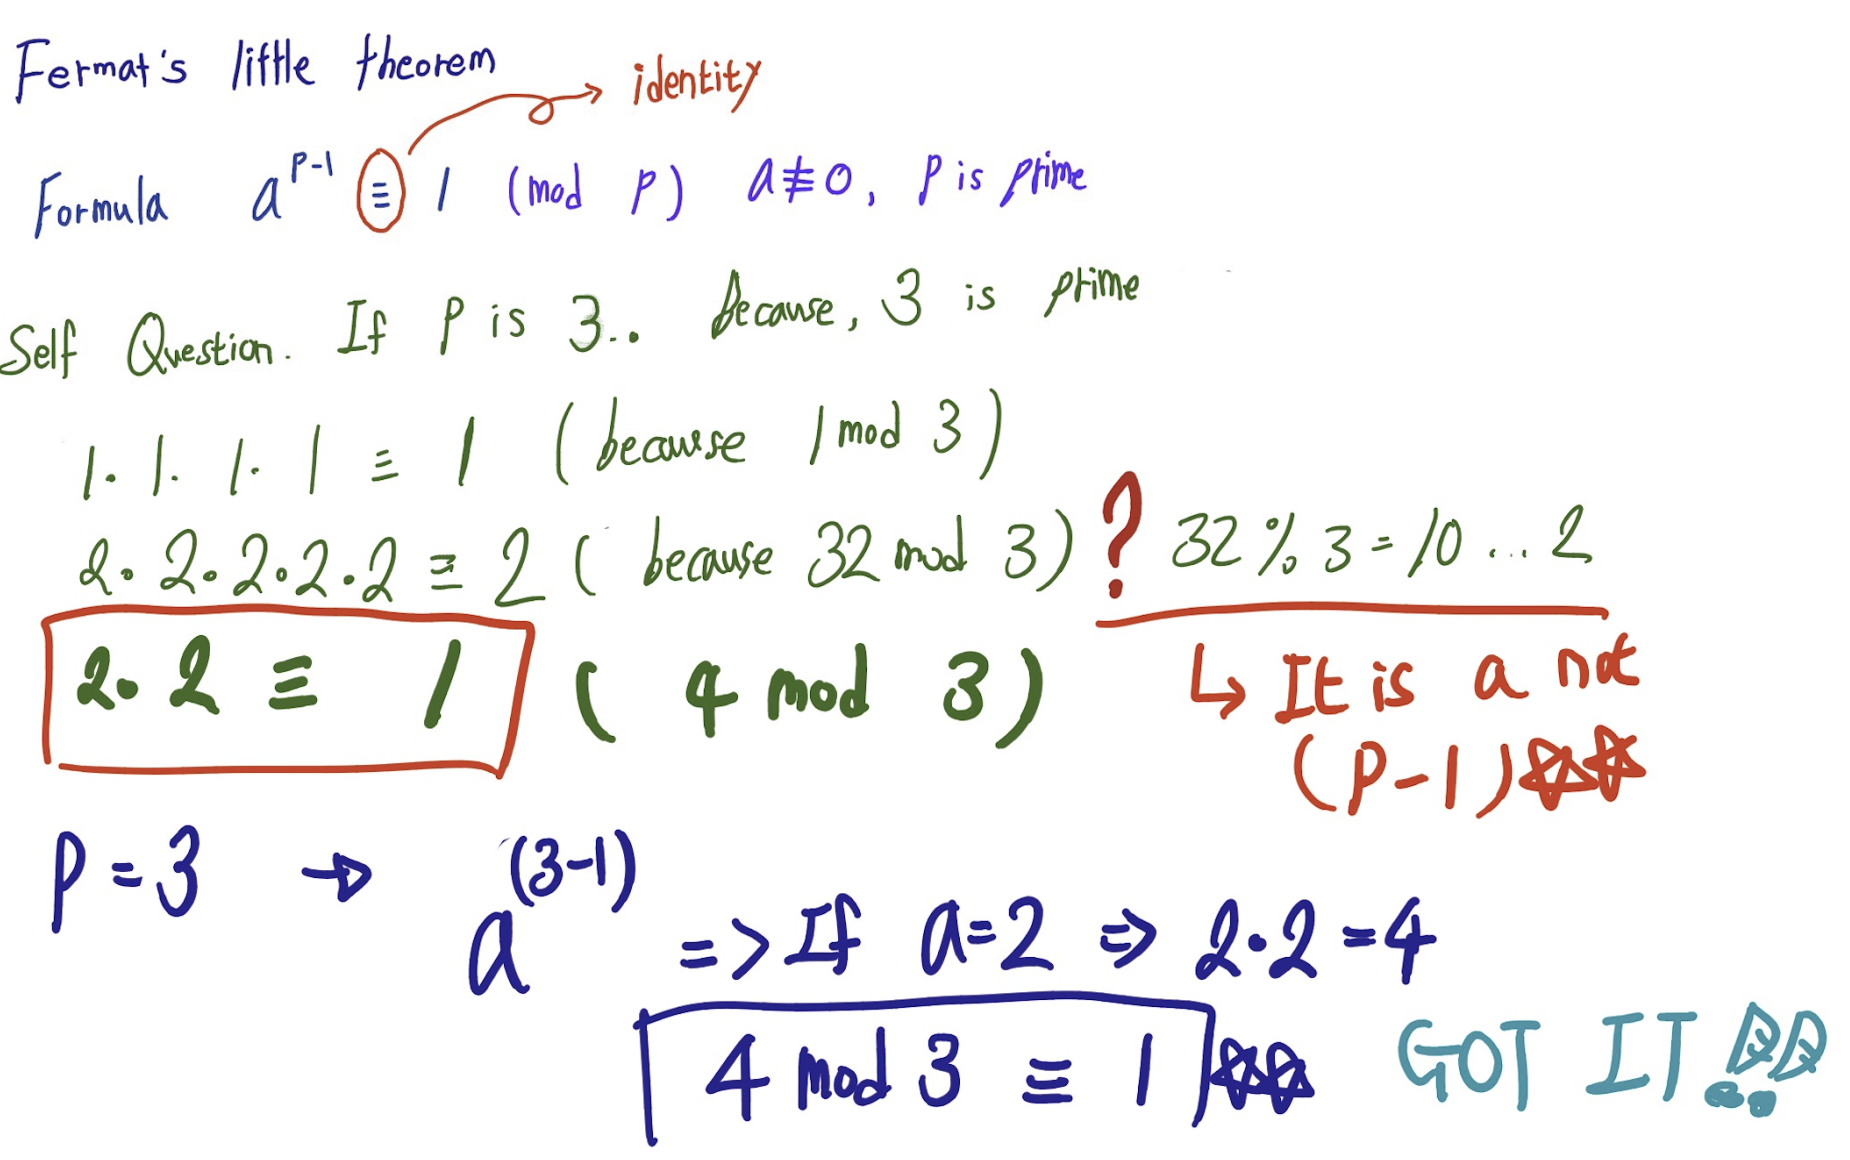 Fermat's little theorem
identity
Formula a^{p-1} ≡ 1 (mod p) a≢0, p is prime
Self Question. If p is 3.. Because, 3 is prime
1. 1. 1. 1 ≡ 1 (because 1 mod 3)
2. 2. 2. 2. 2 ≡ 2 ( because 32 mod 3) ? 32 % 3 = 10 ... 2
2. 2 ≡ 1 ( 4 mod 3)
↳ It is a not
(p-1)☆☆
p=3 → a^{(3-1)} => If a=2 => 2·2=4
4 mod 3 ≡ 1 ☆☆
GOT IT!!